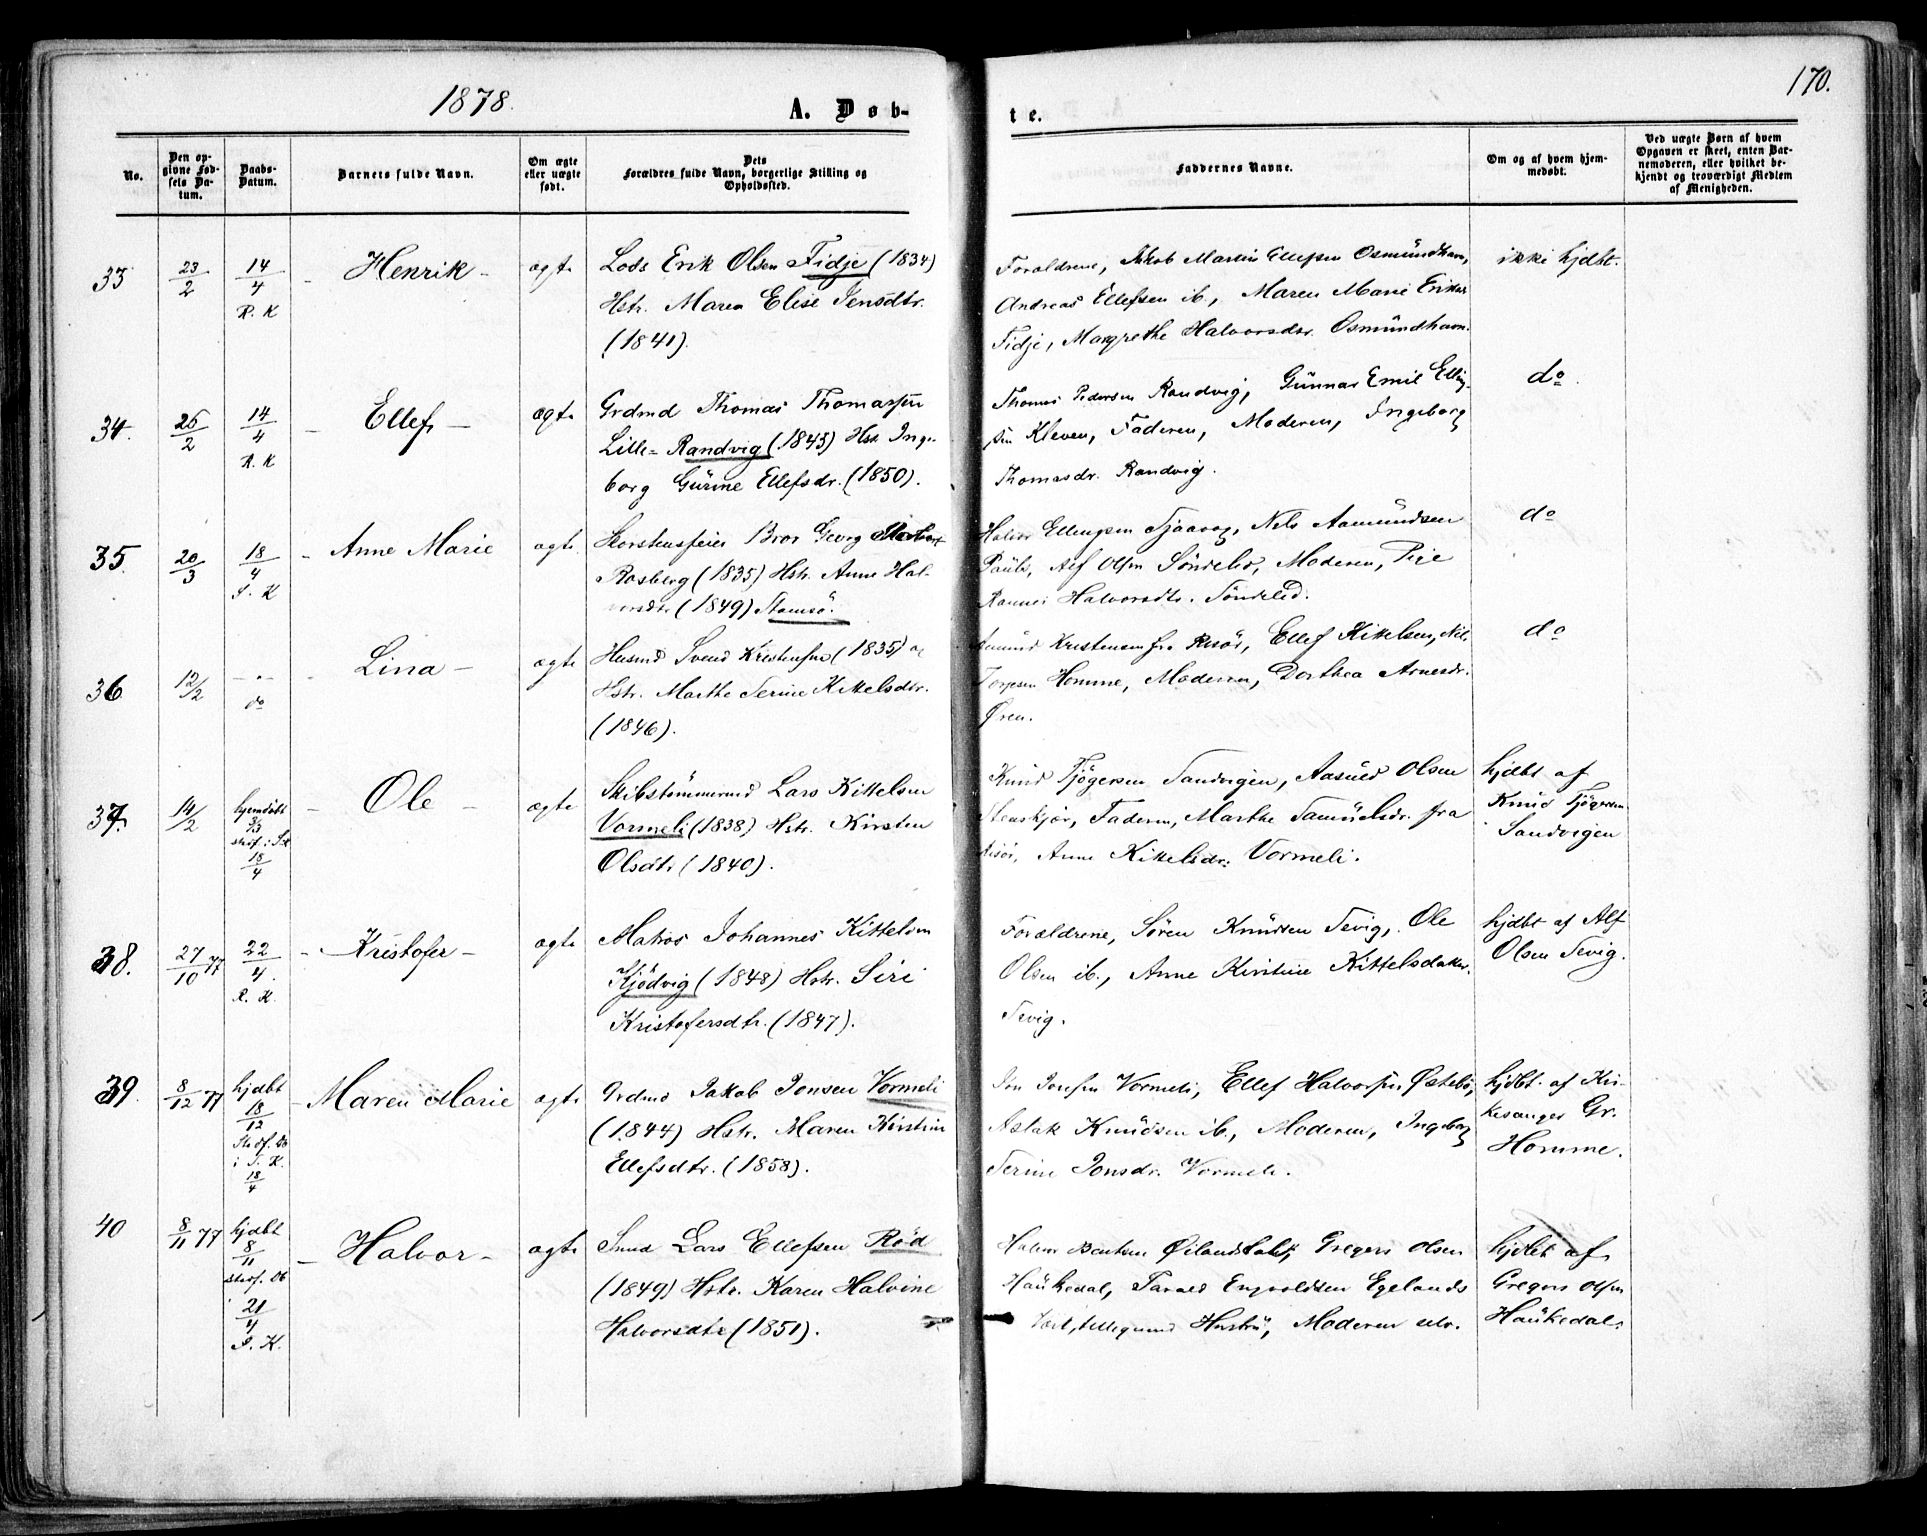 1878.
A. Døb-
te.
170.
No.
Den op-
givne Fød-
sels Da-
tum.
Daabs-
Datum.
Barnets fulde Navn.
Om ægte
eller uægte
født.
Dets
Forældres fulde Navn, borgerlige Stilling og
Opholdssted.
Faddernes Navne.
Om og af hvem hjem-
medøbt.
Ved uægte Børn af hvem
Opgaven er skeet, enten Bar-
nemoderen, eller hvilket be-
kjendt og troværdigt Medlem
af Menigheden.
33
23/2
14/4
R. K
Henrik -
ægte
Lods Erik Olsen Fidje (1834)
Hstr. Maren Elise Jensdtr.
(1841).
Forældrene, Jakob Martin Ellefsen Osmundhavn,
Andreas Ellefsen ib., Maren Marie
Fidje, Margrethe Halvorsdr. Osmundhavn.
ikke hjdbt.
34.
25/2
14/4
R. K
Ellef -
ægte
Grdmd Thomas Thomassen
Lille- Randvig (1845) Hst. Inge-
borg Gurine Ellefsdr. (1850).
Thomas Pedersen Randvig, Gunnar Emil Elling-
sen Kleven, Faderen, Moderen, Ingeborg
Thomasdr. Randvig.
do.
35
20/3
18/4
S. K
- Anne Marie
ægte
Skorstensfeier Bror Georg
Rosberg (1835) Hstr. Anne Hal-
vorsdtr (1849) Stamsö.
Halvor Ellengsen Sjaavaag, Nels Aamundsen
Alf Olsen Söndeled, Moderen, Pige
Halvorsdtr. Söndeled.
do
36
12/2
- " -
do
Lina -
ægte
Husmd Svend Kristensen (1835) og
Hstr. Marthe Serine Kittelsdtr.
(1846).
Aamund Kristensen fra Risör, Ellef Kittelsen,
Torjesen Homme, Moderen, Dorthea Arnesdr.
Øren.
do
37.
14/2
hjemdöbt
3/3
stadf. i S.K
18/4
- Ole -
ægte
Skibstömmermd Lars Kittelsen
Vormeli (1838) Hstr. Kirsten
Olsdtr (1840).
Knud Tjögersen Sandvigen, Aasuld Olsen
Stenskjær, Faderen, Marthe Samuelsdr. fra
Risör, Anne Kittelsdr. Vormeli.
hjdbt af
Knud Tjögersen
Sandvigen
38.
27/10 77
22/4.
R. K.
- Kristofer -
ægte
Matros Johannes Kittelsen
Kjödvig (1848) Hstr. Siri
Kristofersdtr. (1847).
Forældrene, Sören Knudsen Sevig, Ole
Olsen ib., Anne Kirstine Kittelsdatter.
Sevig.
hjdbt af Alf
Olsen Sevig.
39.
8/12 77
hjdbt
18/12
Stadf. Db
i S. K.
18/4
- Maren Marie
ægte
Grdmd Jakob Jonsen Vormeli
(1844) Hstr. Maren Kirstine
Ellefsdtr. (1858).
Jon Josefsen Vormeli, Ellef Halvorsen Østebö,
Aslak Knudsen ib., Moderen, Ingeborg
Serine Jonsdr. Vormeli.
hjdbt. af Kir-
kesanger Gr.
Homme.
40
8/11 77
hjdbt
8/11
stadf. Db
21/4
S. K.
- Halvor -
ægte
Smd Lars Ellefsen Röd
(1849) Hstr. Karen Halvine
Halvorsdtr (1851).
Halvor Bentsen Gregers Olsen
Haukedal, Tarald Engvoldsen Egelands
Hustru, Moderen selv.
hjdbt af
Gregers Olsen
Haukedal.